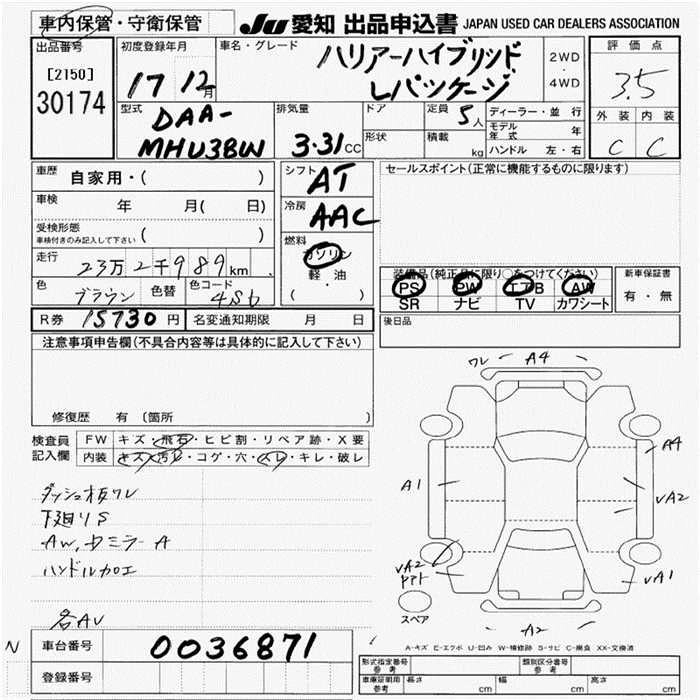 車内保管・守衛保管
JU 愛知 出品申込書 JAPAN USED CAR DEALERS ASSOCIATION
出品番号
[2150]
30174
初度登録年月
17 12月
車名・グレード
ハリアーハイブリッド
Lパッケージ
2WD
・
4WD
評価点
3.5
外装 内装
C C
型式
DAA-
MHU38W
排気量
3.31CC
ドア
形状
定員 5人
積載 kg
ディーラー・並行
モデル年式 年
ハンドル 左・右
車歴
自家用・( )
車検
年 月( 日)
受検形態
車検付きのみ記入して下さい ( )
走行
23万2千989km
色
ブラウン
色替
色コード
4S6
シフト
AT
冷房
AAC
燃料
ガソリン
軽・油
( )
セールスポイント(正常に機能するものに限ります)
装備品(純正品に限り○をつけてください)
PS PW TTB AW
SR ナビ TV カワシート
新車保証書
有・無
R券 15730円 名変通知期限 月 日
後日品
注意事項申告欄(不具合内容等は具体的に記入して下さい)
修復歴 有 〔箇所 〕
検査員
記入欄
FW キズ・飛石・ヒビ割・リペア跡・X要
内装 キズ・汚レ・コゲ・穴・スレ・キレ・破レ
ダッシュ板ワレ
下廻りS
AW,ドミラーA
ハンドルカロエ
各AU
N
車台番号 0036871
登録番号
ワレ A4
A4
A1
UA2
UA2
UA1
スペア
A2
A-キズ E-エクボ U-凹み W-補修跡 S-サビ C-腐食 XX-交換済
形式指定番号
参考
類別区分番号
参考
車庫証明用
参考
長さ cm
幅 cm
高さ cm